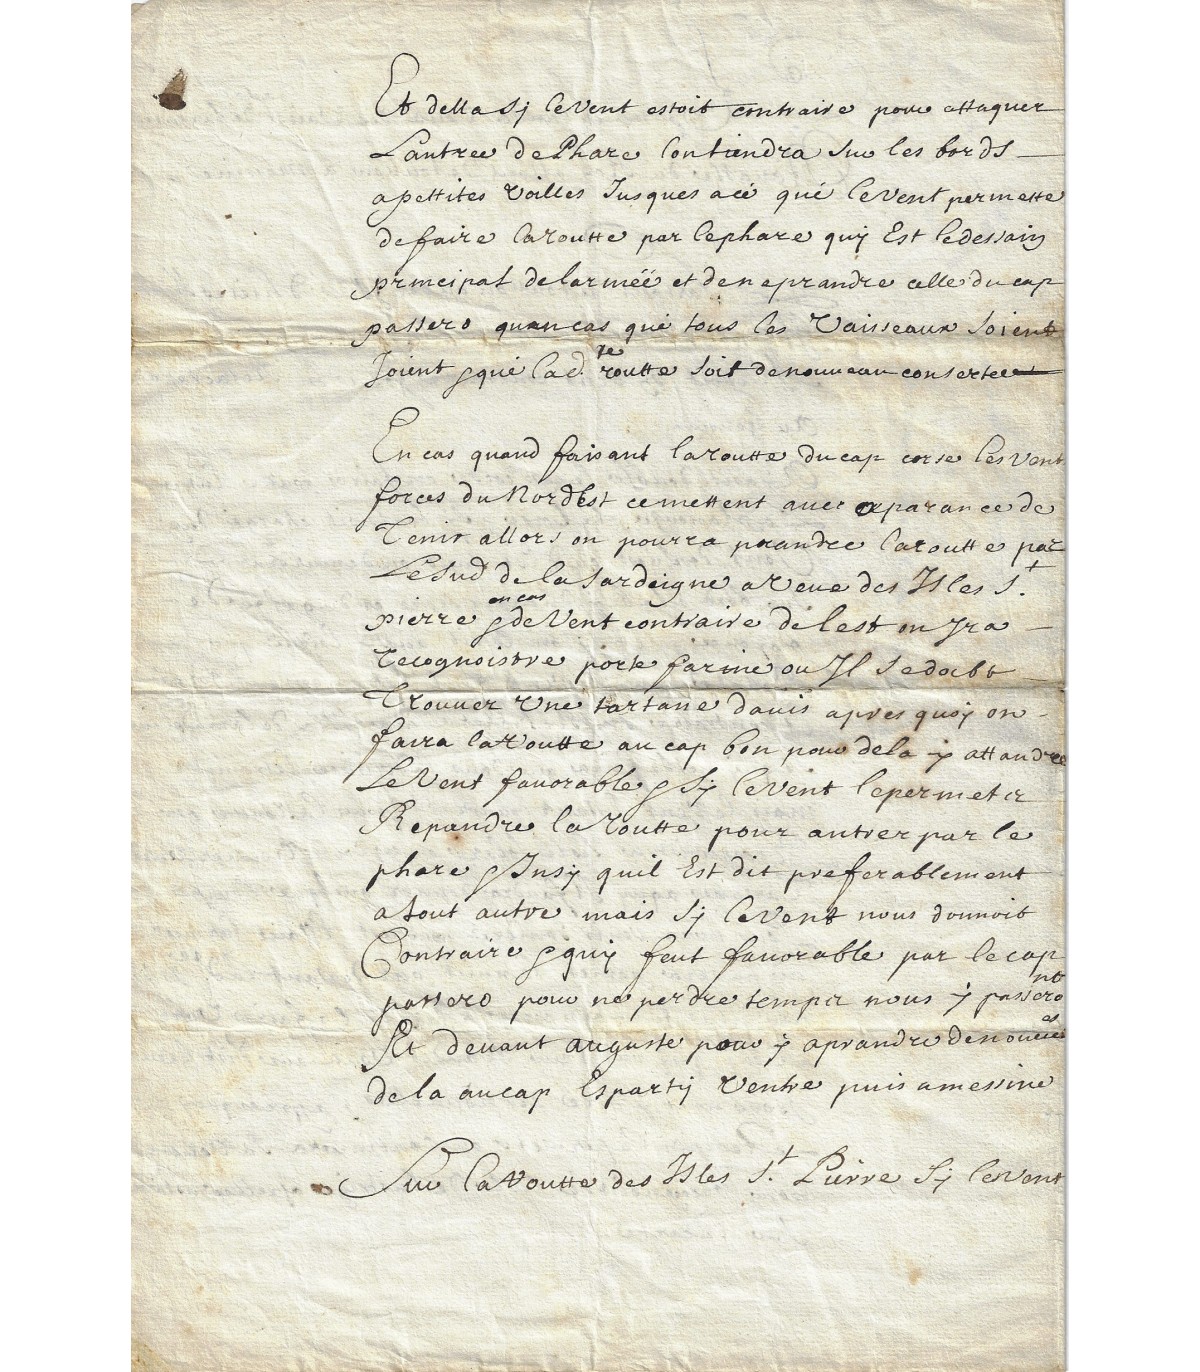 Et della sy levent estoit contraire pour attaquer
Lantree de Phare lontiendra sur les bords
apettites voilles Jusques acé qué levent permette
defaire laroutte par lephare quy Est ledessain
principal delarméé et den eprandre celle du cap
passero quancas qué tous les Vaisseaux soient
Joient & qué lad. te routte soit denouveau consertee
En cas quand faisant laroutte ducap corse lesvent
forces du NordEst cemettent avec aparance de
Tenir allors on pourra prandre laroutte par
LeSud de la Sardeigne a veue des Isles St.
pierre & en cas deVent contraire de lest on Jra
recognoistre porte farine ou Jl sedoibt
Trouver Une tartane davis apres quoy on
faira laroutte au cap bon pour dela y attandre
LeVent favorable & sy levent lepermet
Reprandre la routte pour antrer par le
phare & Insy quil Est dit preferablement
atout autre mais sy levent nous donnoit
Contraire & quy feut favorable par lecap
passero pour ne perdre temps nous y passeront
Et devant auguste pour y aprandre denouveles
de la aucap Esparty Ventre puis amessine
Sur laroutte des Isles St. Pierre sy levent